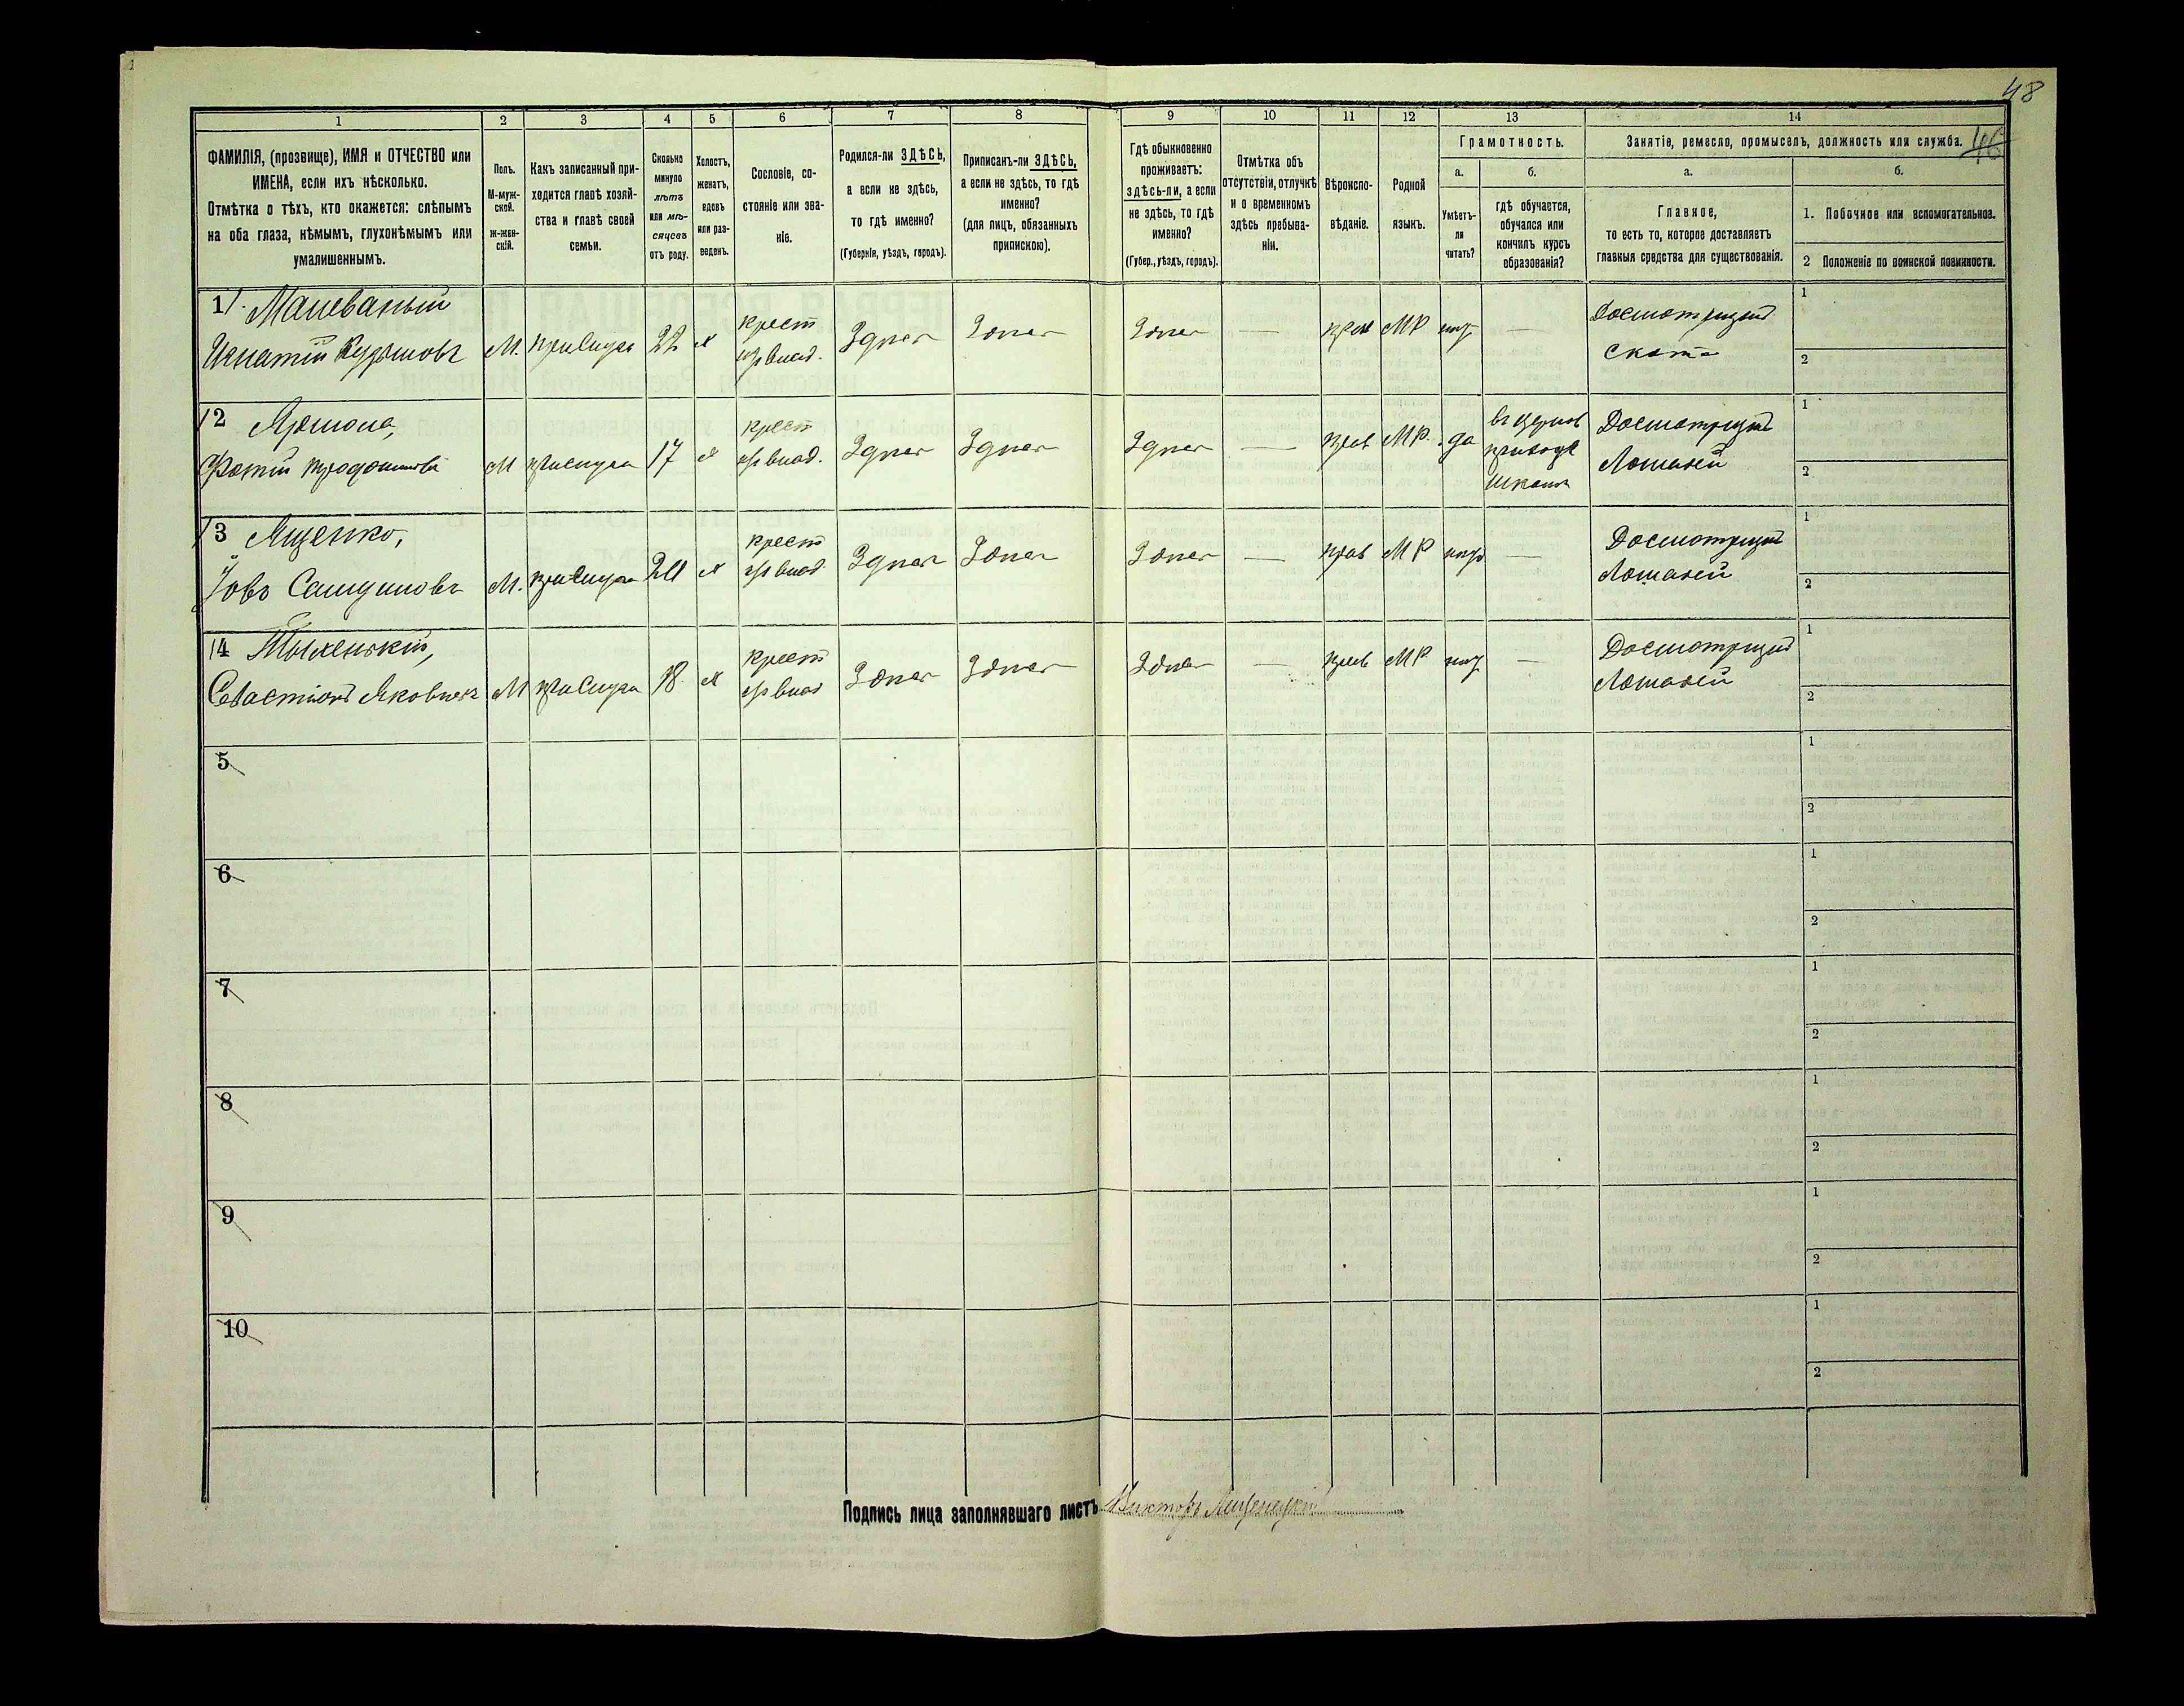 48
46
1 2 3 4 5 6 7 8 9 10 11 12 13 14
ФАМИЛІЯ, (прозвище), ИМЯ и ОТЧЕСТВО или
ИМЕНА, если ихъ нѣсколько.
Отмѣтка о тѣхъ, кто окажется: слѣпымъ
на оба глаза, нѣмымъ, глухонѣмымъ или
умалишеннымъ.
Полъ.
М-муж-
ской.
Ж-жен-
скій.
Какъ записанный при-
ходится главѣ хозяй-
ства и главѣ своей
семьи.
Сколько
минуло
лѣтъ
или мѣ-
сяцевъ
отъ роду.
Холостъ,
женатъ,
вдовъ
или раз-
веденъ.
Сословіе, со-
стояніе или зва-
ніе.
Родился-ли ЗДѢСЬ,
а если не здѣсь,
то гдѣ именно?
(Губернія, уѣздъ, городъ).
Приписанъ-ли ЗДѢСЬ,
а если не здѣсь, то гдѣ
именно?
(для лицъ, обязанныхъ
припискою).
Гдѣ обыкновенно
проживаетъ:
здѣсь-ли, а если
не здѣсь, то гдѣ
именно?
(Губер., уѣздъ, городъ).
Отмѣтка объ
отсутствіи, отлучкѣ
и о временномъ
здѣсь пребыва-
ніи.
Вѣроиспо-
вѣданіе.
Родной
языкъ.
Грамотность.
а.
Умѣетъ-
ли
читать?
б.
гдѣ обучается,
обучался или
кончилъ курсъ
образованія?
Занятіе, ремесло, промыселъ, должность или служба.
а.
Главное,
то есть то, которое доставляетъ
главныя средства для существованія.
б.
1. Побочное или вспомогательное.
2 Положеніе по воинской повинности.
11. Малеваный
Игнатій
М. прислуга 22 х
крест
Здесь Здесь Здесь — прав МР —
Досмотрщик
скота
1
2
12
Фотій
М прислуга 17 х
крест
Здесь Здесь Здесь — прав МР. да
въ церков
приход
школе
Досмотрщик
Лошадей
1
2
13 Ященко,
Іовъ
М. прислуга х
крест
Здесь Здесь Здесь — прав МР —
Досмотрщик
Лошадей
1
2
14
М прислуга 18 х
крест
Здесь Здесь Здесь — прав МР —
Досмотрщик
Лошадей
1
2
5
1
2
6
1
2
7
1
2
8
1
2
9
1
2
10
1
2
Подпись лица заполнявшаго листъ Викторъ